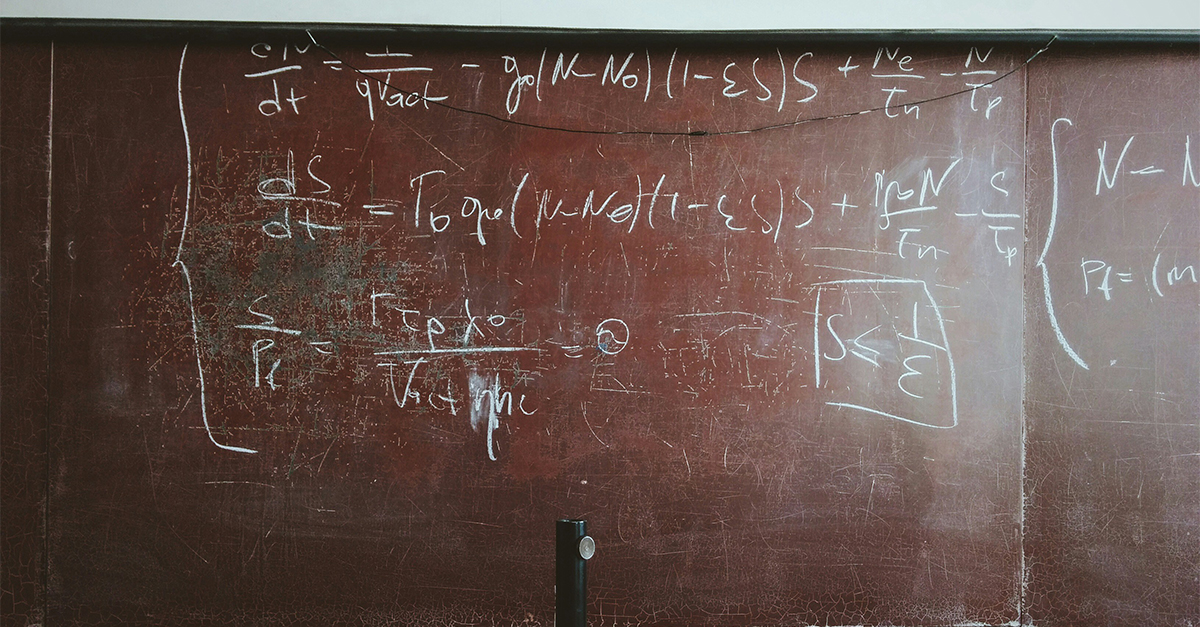 dN/dt = I/qVact - g0(N-N0)(1-εS)S + Ne/τn - N/τp
dS/dt = Γ0 g0(N-N0)(1-εS)S + N/τn - S/τp
S/Pf = Γτpλ0/Vact ηhc =
S ≤ 1/ε
N - N
Pf = (m